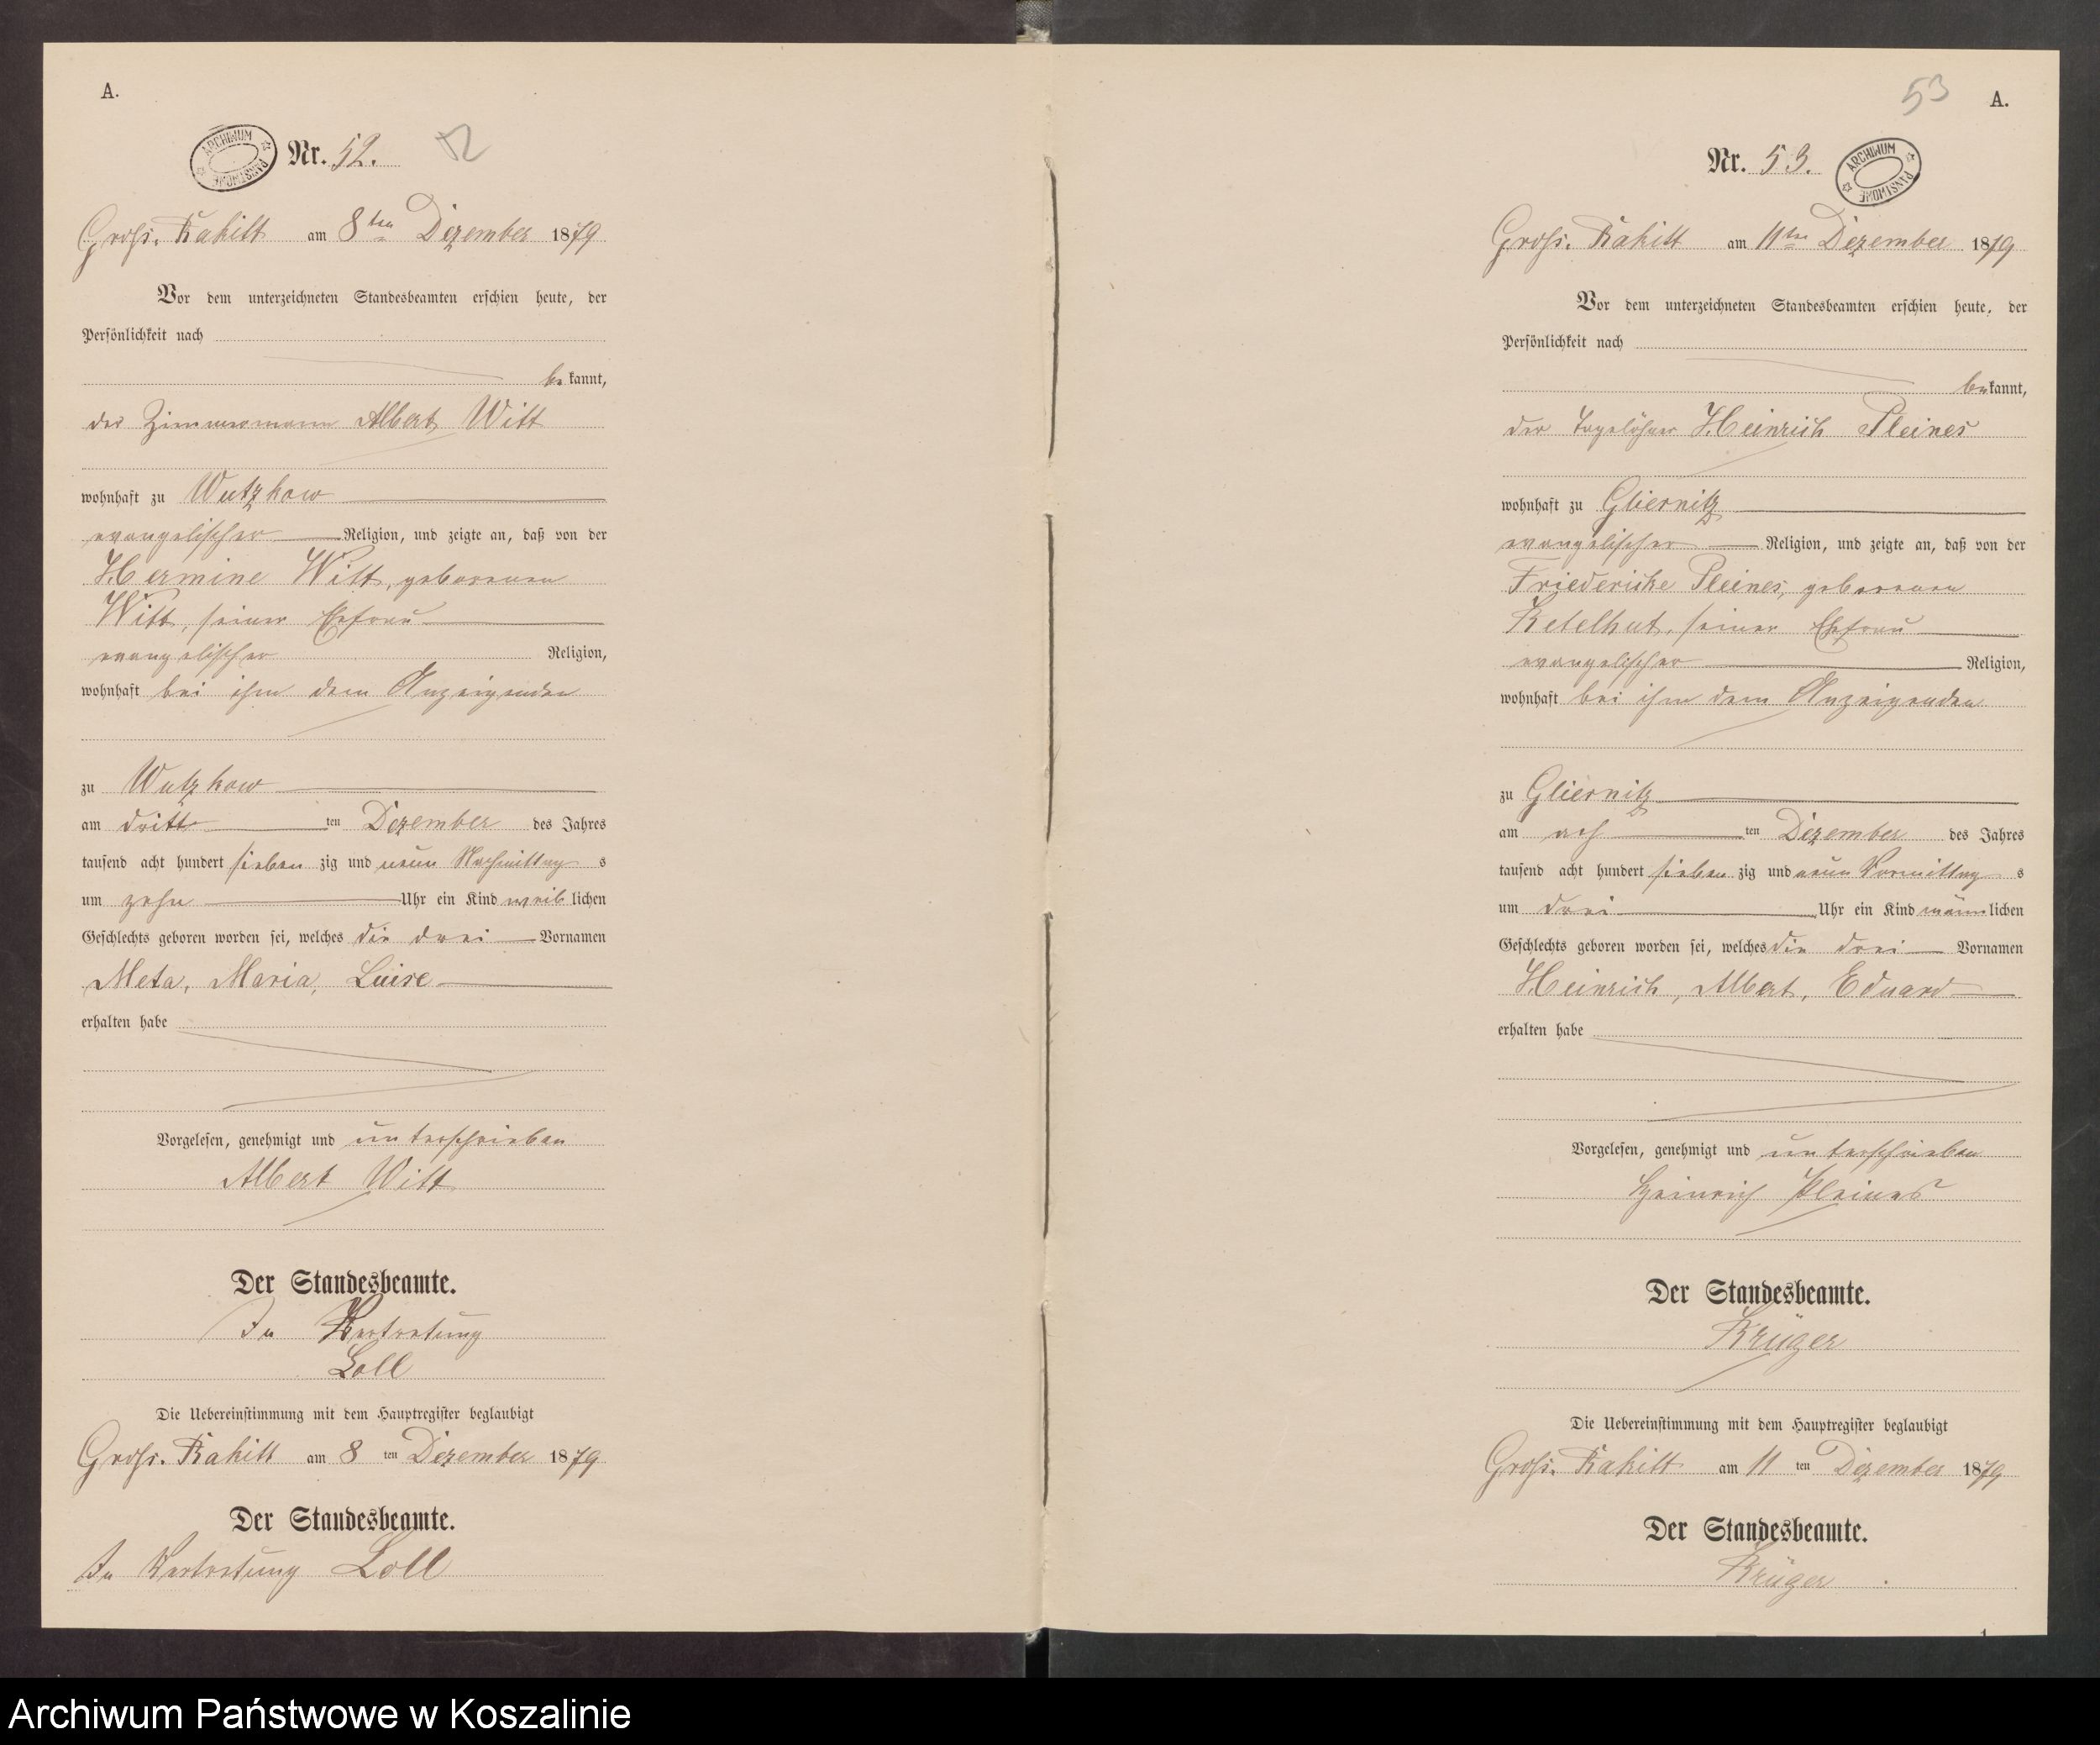 A.
Nr. 52.
52
ARCHIWUM PAŃSTWOWE
Gross. Rakitt am 8ten Dezember 1879
Vor dem unterzeichneten Standesbeamten erschien heute, der
Persönlichkeit nach
bekannt,
der Zimmermann Albert Witt
wohnhaft zu Wutzkow
evangelischer Religion, und zeigte an, daß von der
Hermine Witt, geborenen
Witt, seiner Ehefrau
evangelischer Religion,
wohnhaft bei ihm dem Anzeigenden
zu Wutzkow
am dritten Dezember des Jahres
tausend acht hundert siebenzig und neun Nachmittags
um zehn Uhr ein Kind weiblichen
Geschlechts geboren worden sei, welches die drei Vornamen
Meta, Maria, Luise
erhalten habe
Vorgelesen, genehmigt und unterschrieben
Albert Witt
Der Standesbeamte.
In Vertretung
Loll
Die Uebereinstimmung mit dem Hauptregister beglaubigt
Gross. Rakitt am 8ten Dezember 1879
Der Standesbeamte.
In Vertretung Loll
53
A.
Nr. 53.
ARCHIWUM PAŃSTWOWE
Gross. Rakitt am 11ten Dezember 1879
Vor dem unterzeichneten Standesbeamten erschien heute, der
Persönlichkeit nach
bekannt,
der Tagelöhner Heinrich Pleines
wohnhaft zu Gliesnitz
evangelischer Religion, und zeigte an, daß von der
Friedericke Pleines, geborenen
Ketelhut, seiner Ehefrau
evangelischer Religion,
wohnhaft bei ihm dem Anzeigenden
zu Gliesnitz
am achten Dezember des Jahres
tausend acht hundert siebenzig und neun Vormittags
um drei Uhr ein Kind männlichen
Geschlechts geboren worden sei, welches die drei Vornamen
Heinrich, Albert, Eduard
erhalten habe
Vorgelesen, genehmigt und unterschrieben
Heinrich Pleines
Der Standesbeamte.
Krüger
Die Uebereinstimmung mit dem Hauptregister beglaubigt
Gross. Rakitt am 11ten Dezember 1879
Der Standesbeamte.
Krüger
Archiwum Państwowe w Koszalinie